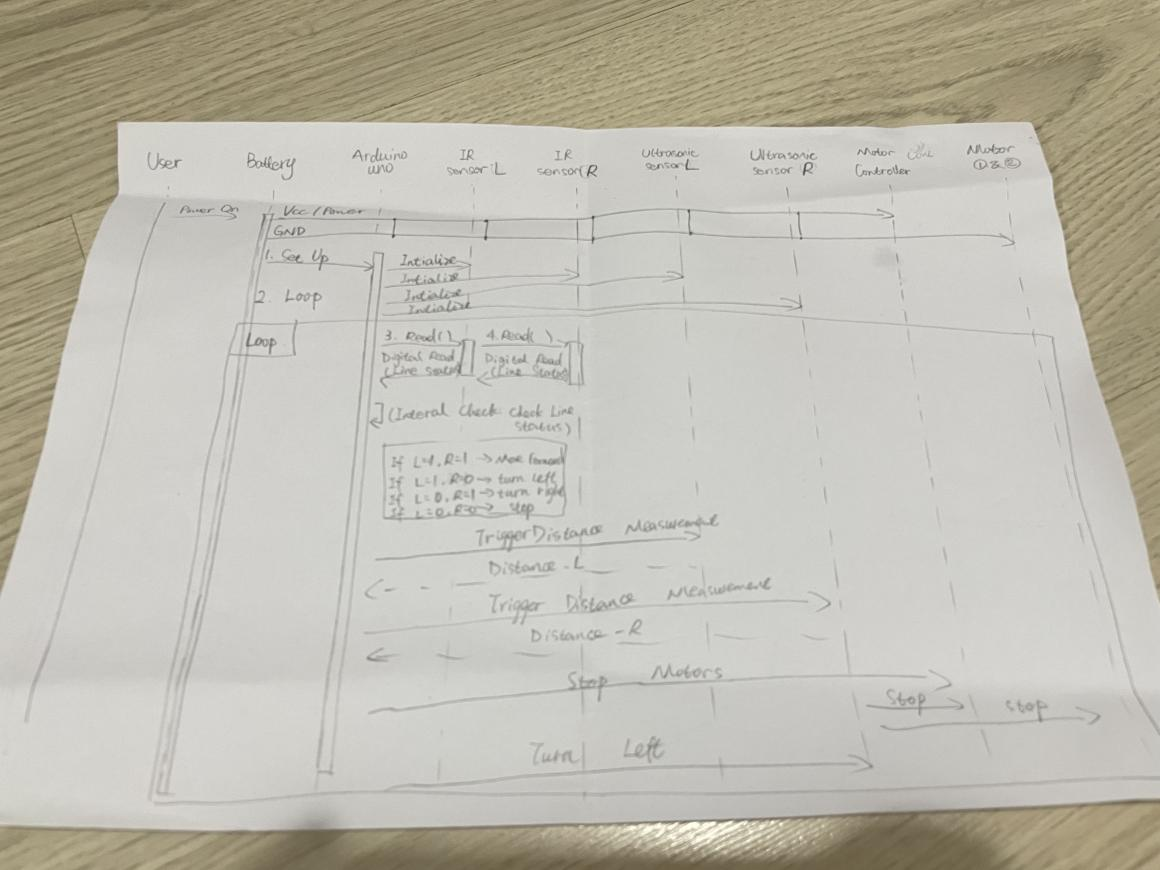 User
Battery
Arduino
uno
IR
sensor L
IR
sensor R
Ultrasonic
sensor L
Ultrasonic
sensor R
Motor
Controller
Motor
①&②
Power On
Vcc / Power
GND
1. See Up
Intialize
Intialize
Intialize
Intialize
2. Loop
Loop
3. Read( )
4. Read( )
Digital Read
(Line status)
Digital Read
(Line Status)
(Interal Check: Check Line
status)
If L=1, R=1 → Moe forward
If L=1, R=0 → turn left
If L=0, R=1 → turn right
If L=0, R=0 → stop
Trigger Distance Measurement
Distance - L
Trigger Distance Measurement
Distance - R
Stop Motors
Stop
Stop
Turn Left